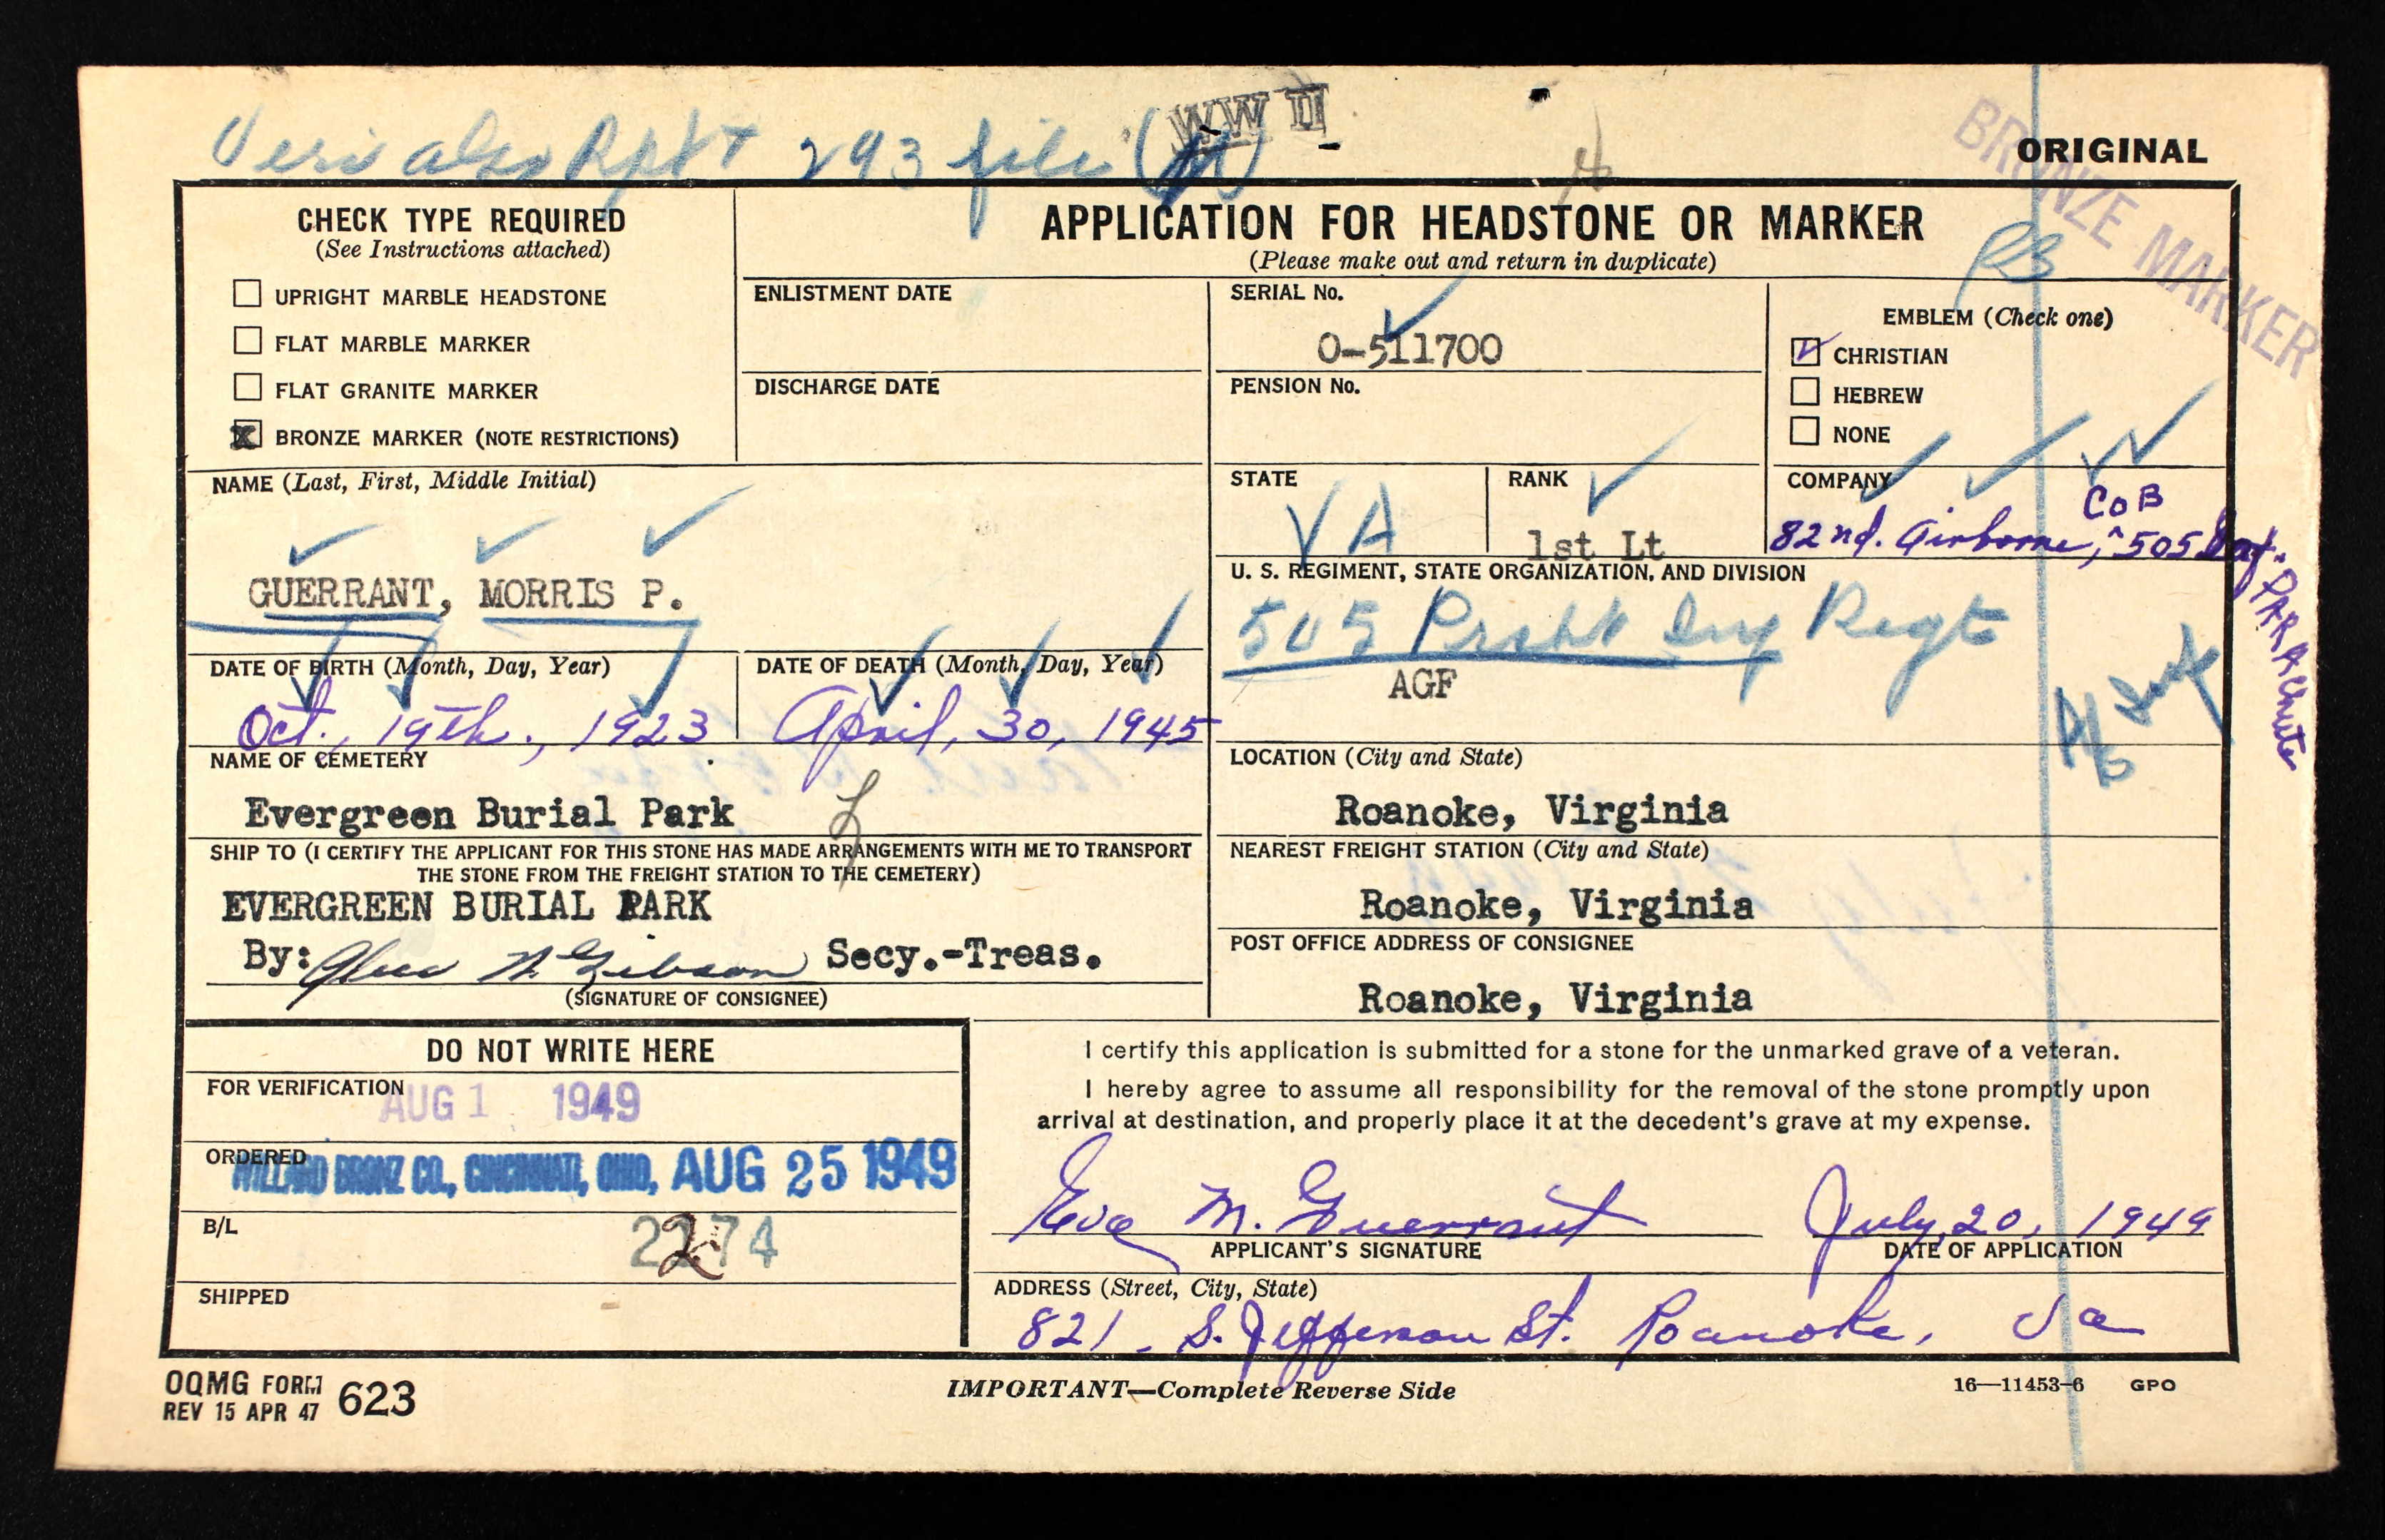 293 file
WW II
ORIGINAL
BRONZE MARKER
CHECK TYPE REQUIRED
(See Instructions attached)
UPRIGHT MARBLE HEADSTONE
FLAT MARBLE MARKER
FLAT GRANITE MARKER
X BRONZE MARKER (NOTE RESTRICTIONS)
APPLICATION FOR HEADSTONE OR MARKER
(Please make out and return in duplicate)
ENLISTMENT DATE
DISCHARGE DATE
SERIAL No.
O-511700
PENSION No.
EMBLEM (Check one)
CHRISTIAN
HEBREW
NONE
NAME (Last, First, Middle Initial)
GUERRANT, MORRIS P.
STATE
VA
RANK
1st Lt
COMPANY
Co B
82nd. Airborne, ^ 505 Inf.
PARAchute
U. S. REGIMENT, STATE ORGANIZATION, AND DIVISION
505 Prcht Inf Regt
AGF
DATE OF BIRTH (Month, Day, Year)
Oct., 19th., 1923
DATE OF DEATH (Month, Day, Year)
April, 30, 1945
NAME OF CEMETERY
Evergreen Burial Park
LOCATION (City and State)
Roanoke, Virginia
SHIP TO (I CERTIFY THE APPLICANT FOR THIS STONE HAS MADE ARRANGEMENTS WITH ME TO TRANSPORT
THE STONE FROM THE FREIGHT STATION TO THE CEMETERY)
EVERGREEN BURIAL PARK
By: Gibson Secy.-Treas.
(SIGNATURE OF CONSIGNEE)
NEAREST FREIGHT STATION (City and State)
Roanoke, Virginia
POST OFFICE ADDRESS OF CONSIGNEE
Roanoke, Virginia
DO NOT WRITE HERE
FOR VERIFICATION
AUG 1 1949
ORDERED
WILLARD BRONZ CO., CINCINNATI, OHIO, AUG 25 1949
B/L
2274
SHIPPED
I certify this application is submitted for a stone for the unmarked grave of a veteran.
I hereby agree to assume all responsibility for the removal of the stone promptly upon
arrival at destination, and properly place it at the decedent's grave at my expense.
Eva M. Guerrant
July, 20, 1949
APPLICANT'S SIGNATURE
DATE OF APPLICATION
ADDRESS (Street, City, State)
821 - S. Jefferson St. Roanoke, Va
OQMG FORM 623
REV 15 APR 47
IMPORTANT—Complete Reverse Side
16—11453-6 GPO